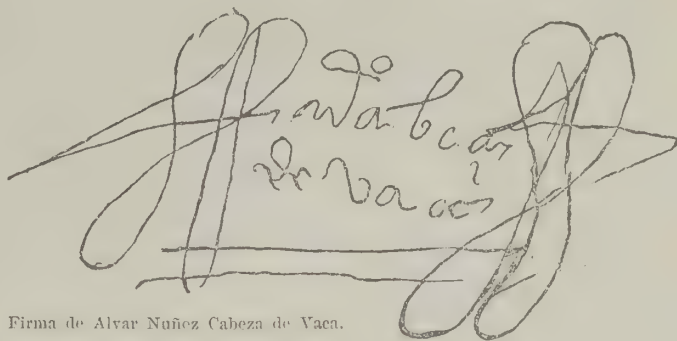 de vaca
Firma de Alvar Nuñez Cabeza de Vaca.